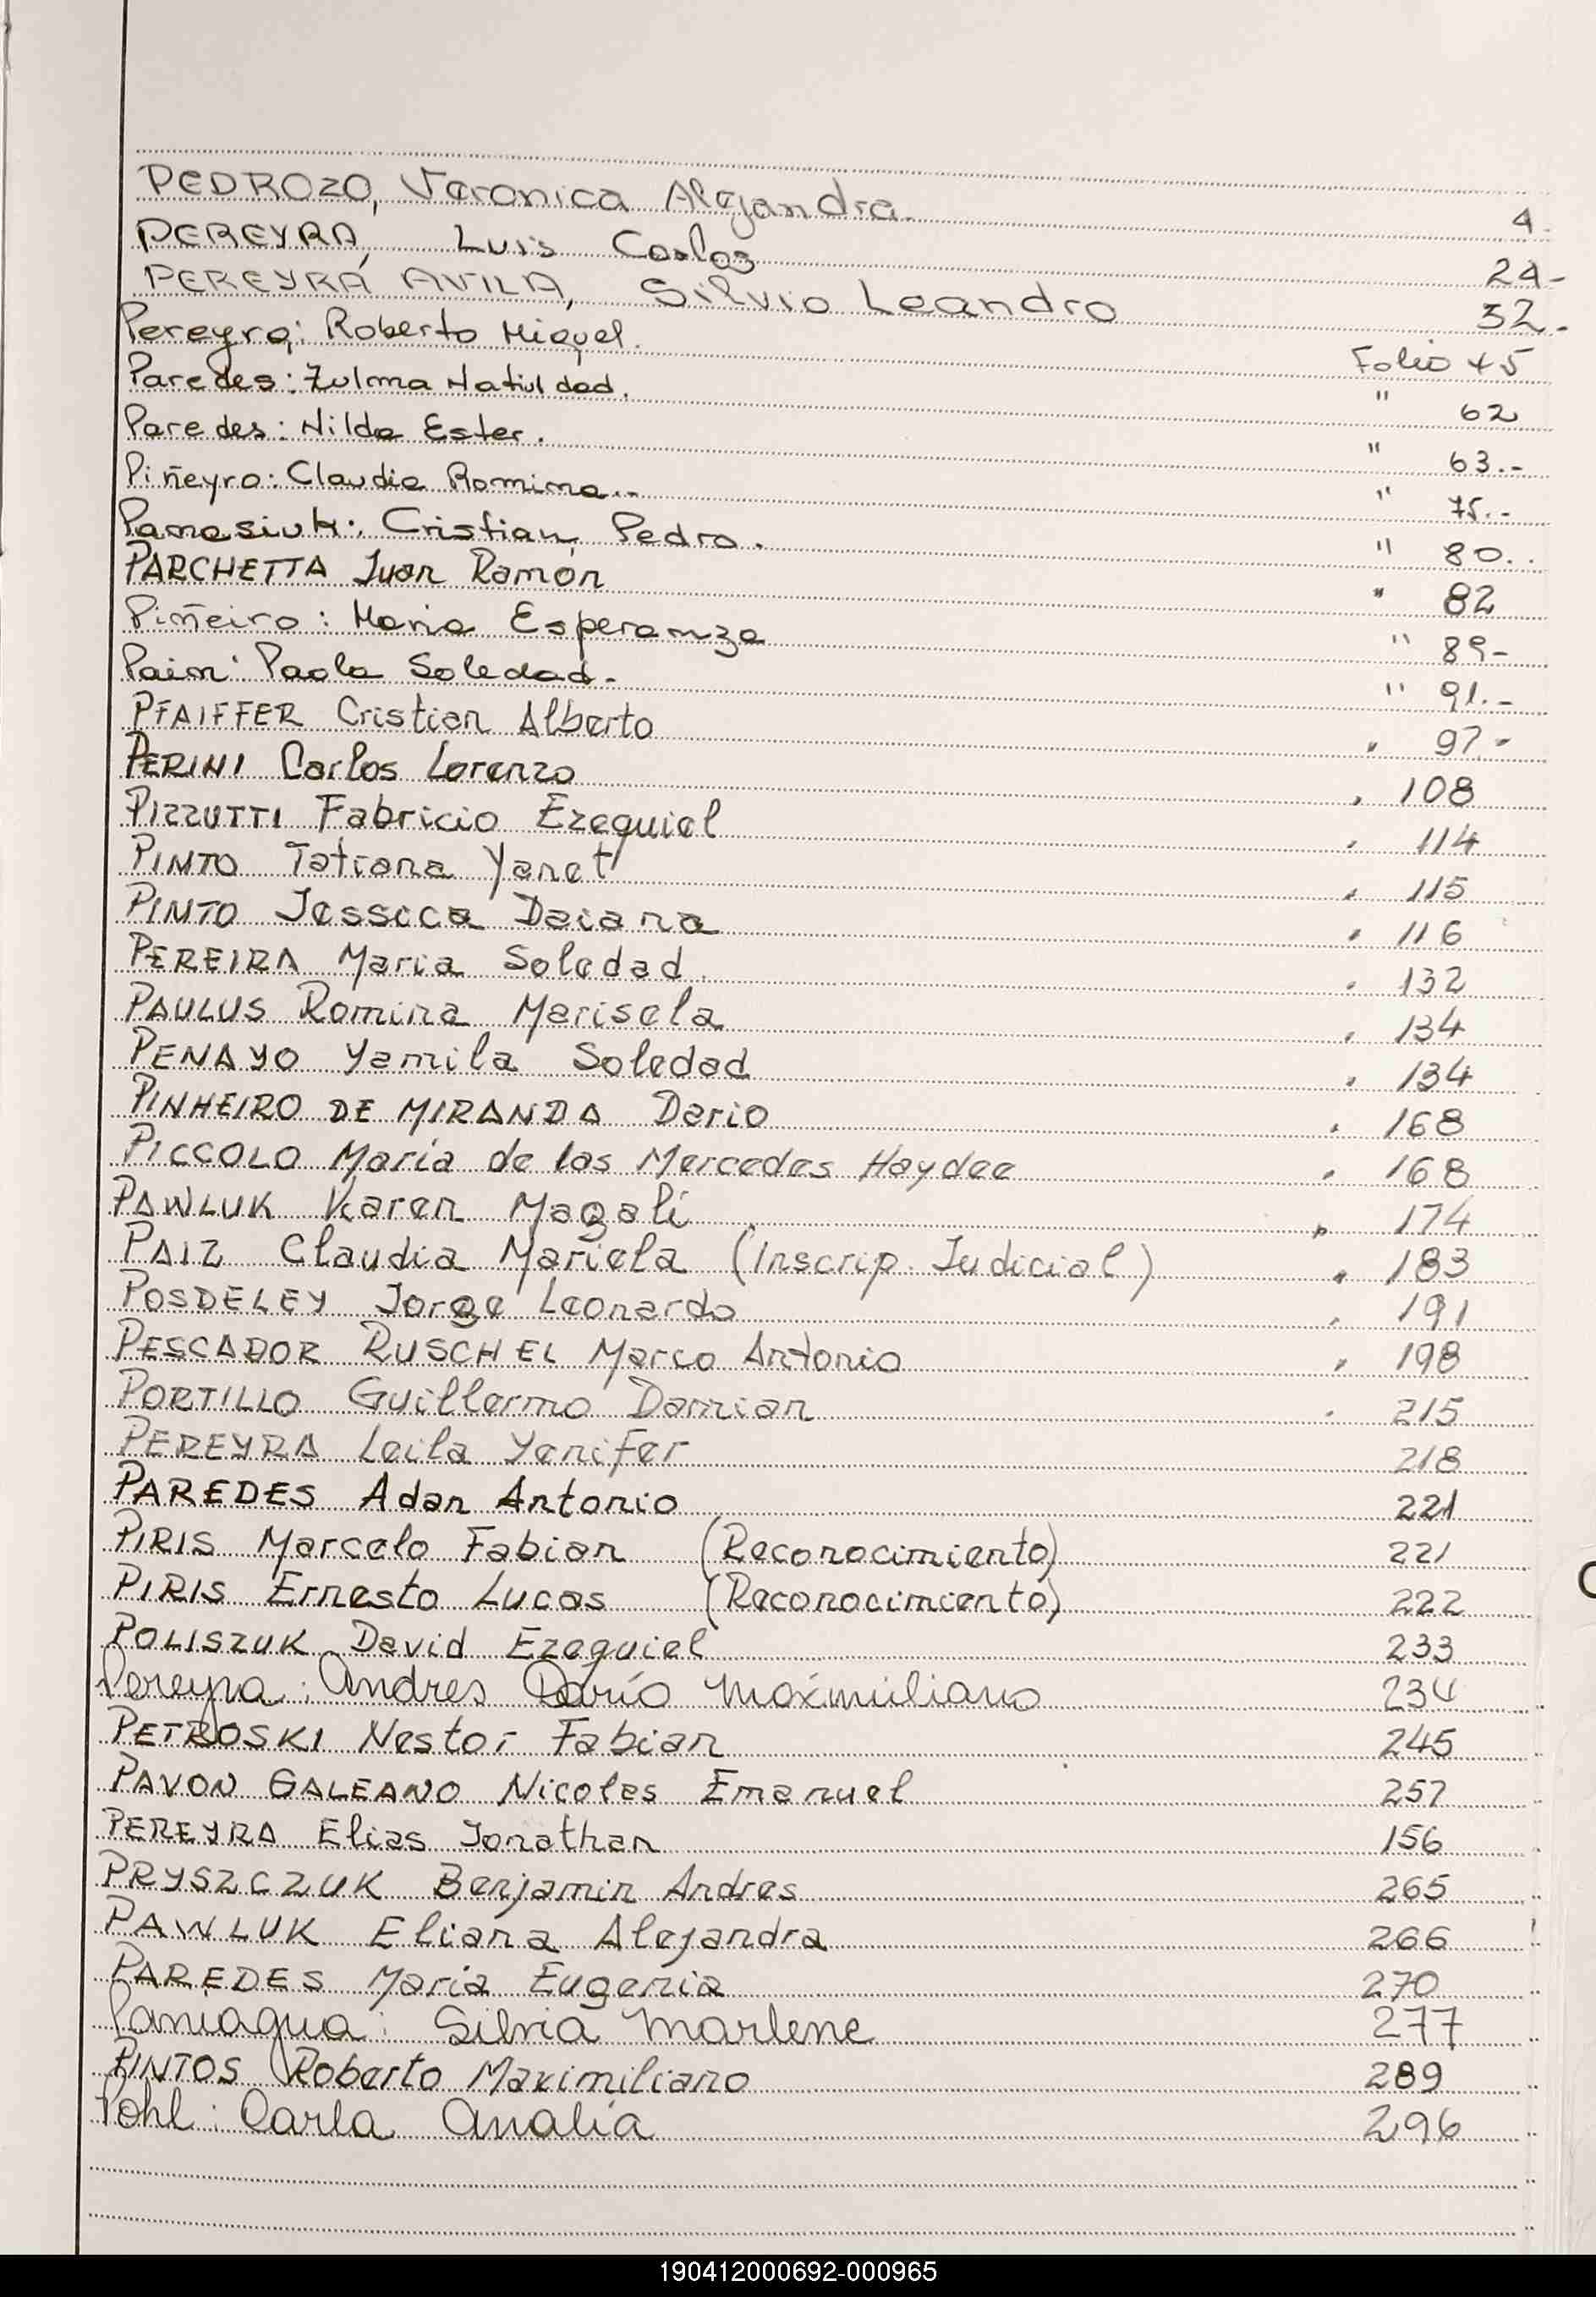 PEDROZO, Veronica Alejandra. 4.
PEREYRA, Luis Carlos 24-
PEREYRA AVILA, Silvio Leandro 32.-
Pereyra: Roberto Miguel. Folio 45
Paredes: Zulma Natividad. " 62
Paredes: Nilda Ester. " 63.-
Piñeyro: Claudia Romina.- " 75.-
Panasiuk: Cristian Pedro. " 80..
PARCHETTA Juan Ramón " 82
Piñeiro: Maria Esperanza " 89-
Paim: Paola Soledad.- " 91.-
PFAIFFER Cristian Alberto " 97-
PERINI Carlos Lorenzo " 108
PIZZUTTI Fabricio Ezequiel " 114
PINTO Tatiana Yanet " 115
PINTO Jessica Daiana " 116
PEREIRA Maria Soledad. " 132
PAULUS Romina Marisela " 134
PENAYO Yamila Soledad " 134
PINHEIRO DE MIRANDA Dario " 168
PICCOLO María de las Mercedes Haydee " 168
PAWLUK Karen Magalí " 174
PAIZ Claudia Mariela (Inscrip. Judicial) " 183
POSDELEY Jorge Leonardo " 191
PESCADOR RUSCHEL Marco Antonio " 198
PORTILLO Guillermo Damian " 215
PEREYRA Leila Yenifer 218
PAREDES Adan Antonio 221
PIRIS Marcelo Fabian (Reconocimiento) 221
PIRIS Ernesto Lucas (Reconocimiento) 222
POLISZUK David Ezequiel 233
Pereyra: Andres Darío Maxmiliano 234
PETROSKI Nestor Fabian 245
PAVON GALEANO Nicolas Emanuel 257
PEREYRA Elias Jonathan 156
PRYSZCZUK Benjamin Andres 265
PAWLUK Eliana Alejandra 266
PAREDES María Eugenia 270
Paniagua: Silvia Marlene 277
PINTOS Roberto Maximiliano 289
Pohl: Carla Analía 296
190412000692-000965